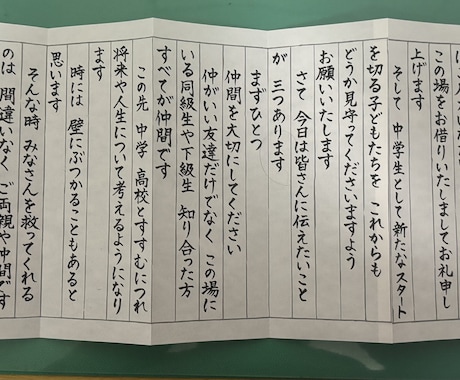 この場をお借りいたしましてお礼申し
上げます
そして 中学生として新たなスタート
を切る子どもたちを これからも
どうか見守ってくださいますよう
お願いいたします
さて 今日は皆さんに伝えたいこと
が 三つあります
まずひとつ
仲間を大切にしてください
仲がいい友達だけでなく この場に
いる同級生や下級生 知り合った方
すべてが仲間です
この先 中学 高校とすすむにつれ
将来や人生について考えるようになり
ます
時には 壁にぶつかることもあると
思います
そんな時 みなさんを救ってくれる
のは 間違いなく ご両親や仲間です